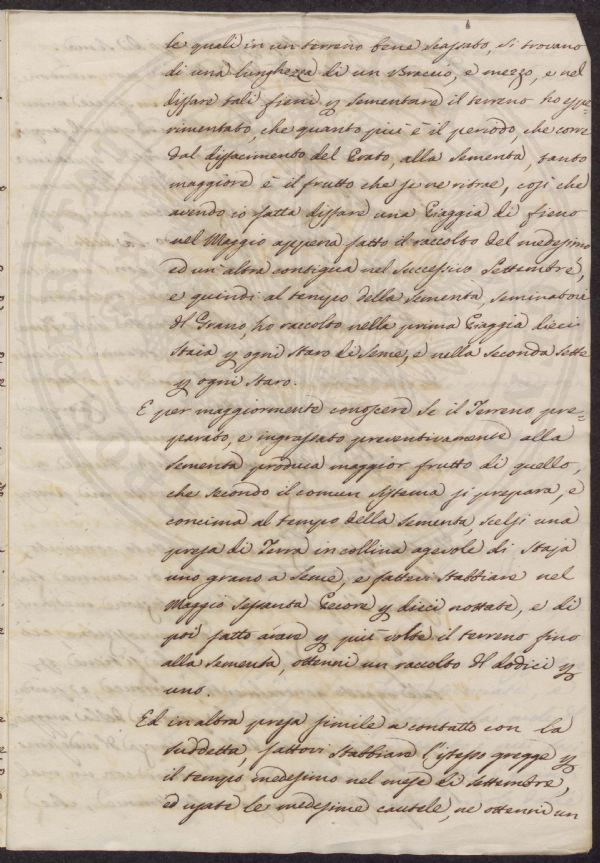 le quali in un terreno bene scassato, si trovano
di una lunghezza di un Braccio, e mezzo, e nel
disfare tali fieni p sementare il terreno ho spe=
rimentato, che quanto piu è il periodo, che corre
dal disfacimento del Prato, alla Sementa, tanto
maggiore è il frutto che se ne ritrae, così che
avendo io fatta disfare una Piaggia di fieno
nel Maggio appena fatto il raccolto del medesimo
ed un'altra contigua nel successivo Settembre,
e quindi al tempo della Sementa, seminatovi
Grano, ho raccolto nella prima Piaggia dieci
staia p ogni staro di seme, e nella seconda sette
p ogni staro.
E per maggiormente conoscere se il Terreno pre=
parato, e ingrassato preventivamente alla
sementa produca maggior frutto di quello,
che secondo il comun sistema si prepara, e
concima al tempo della Sementa, scelsi una
presa di Terra in collina agevole di Staja
uno grano a Seme, e fattevi Stabbiare nel
Maggio sessanta Pecore p dieci nottate, e di
poi fatto arare p più volte il terreno fino
alla sementa, ottenni un raccolto di dodici p
uno.
Ed in altra presa simile a contatto con la
suddetta, fattovi stabbiare l'istesso gregge p
il tempo medesimo nel mese di settembre,
ed usate le medesime cautele, ne ottenni un